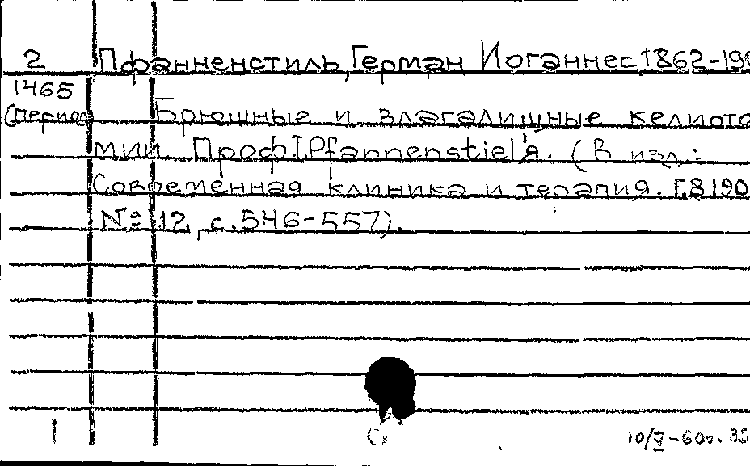 2 Пфанненстиль, Герман Иоганнес 1862-190
1465
(период Брюшные и влагалищные келиото
мии Проф. Pfannenstiel'я. (В изд.:
Современная клиника и терапия. Г.8 190
№ 12, с. 546-557).
1
10/V-60г.